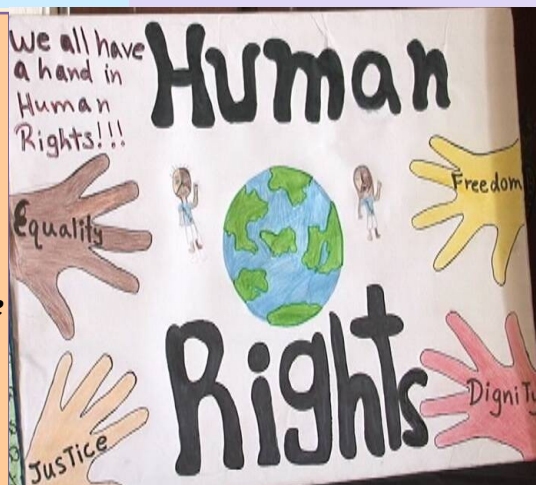 We all have
a hand in
Human
Rights!!!
Human
Equality
Freedom
Rights
Justice
Dignity